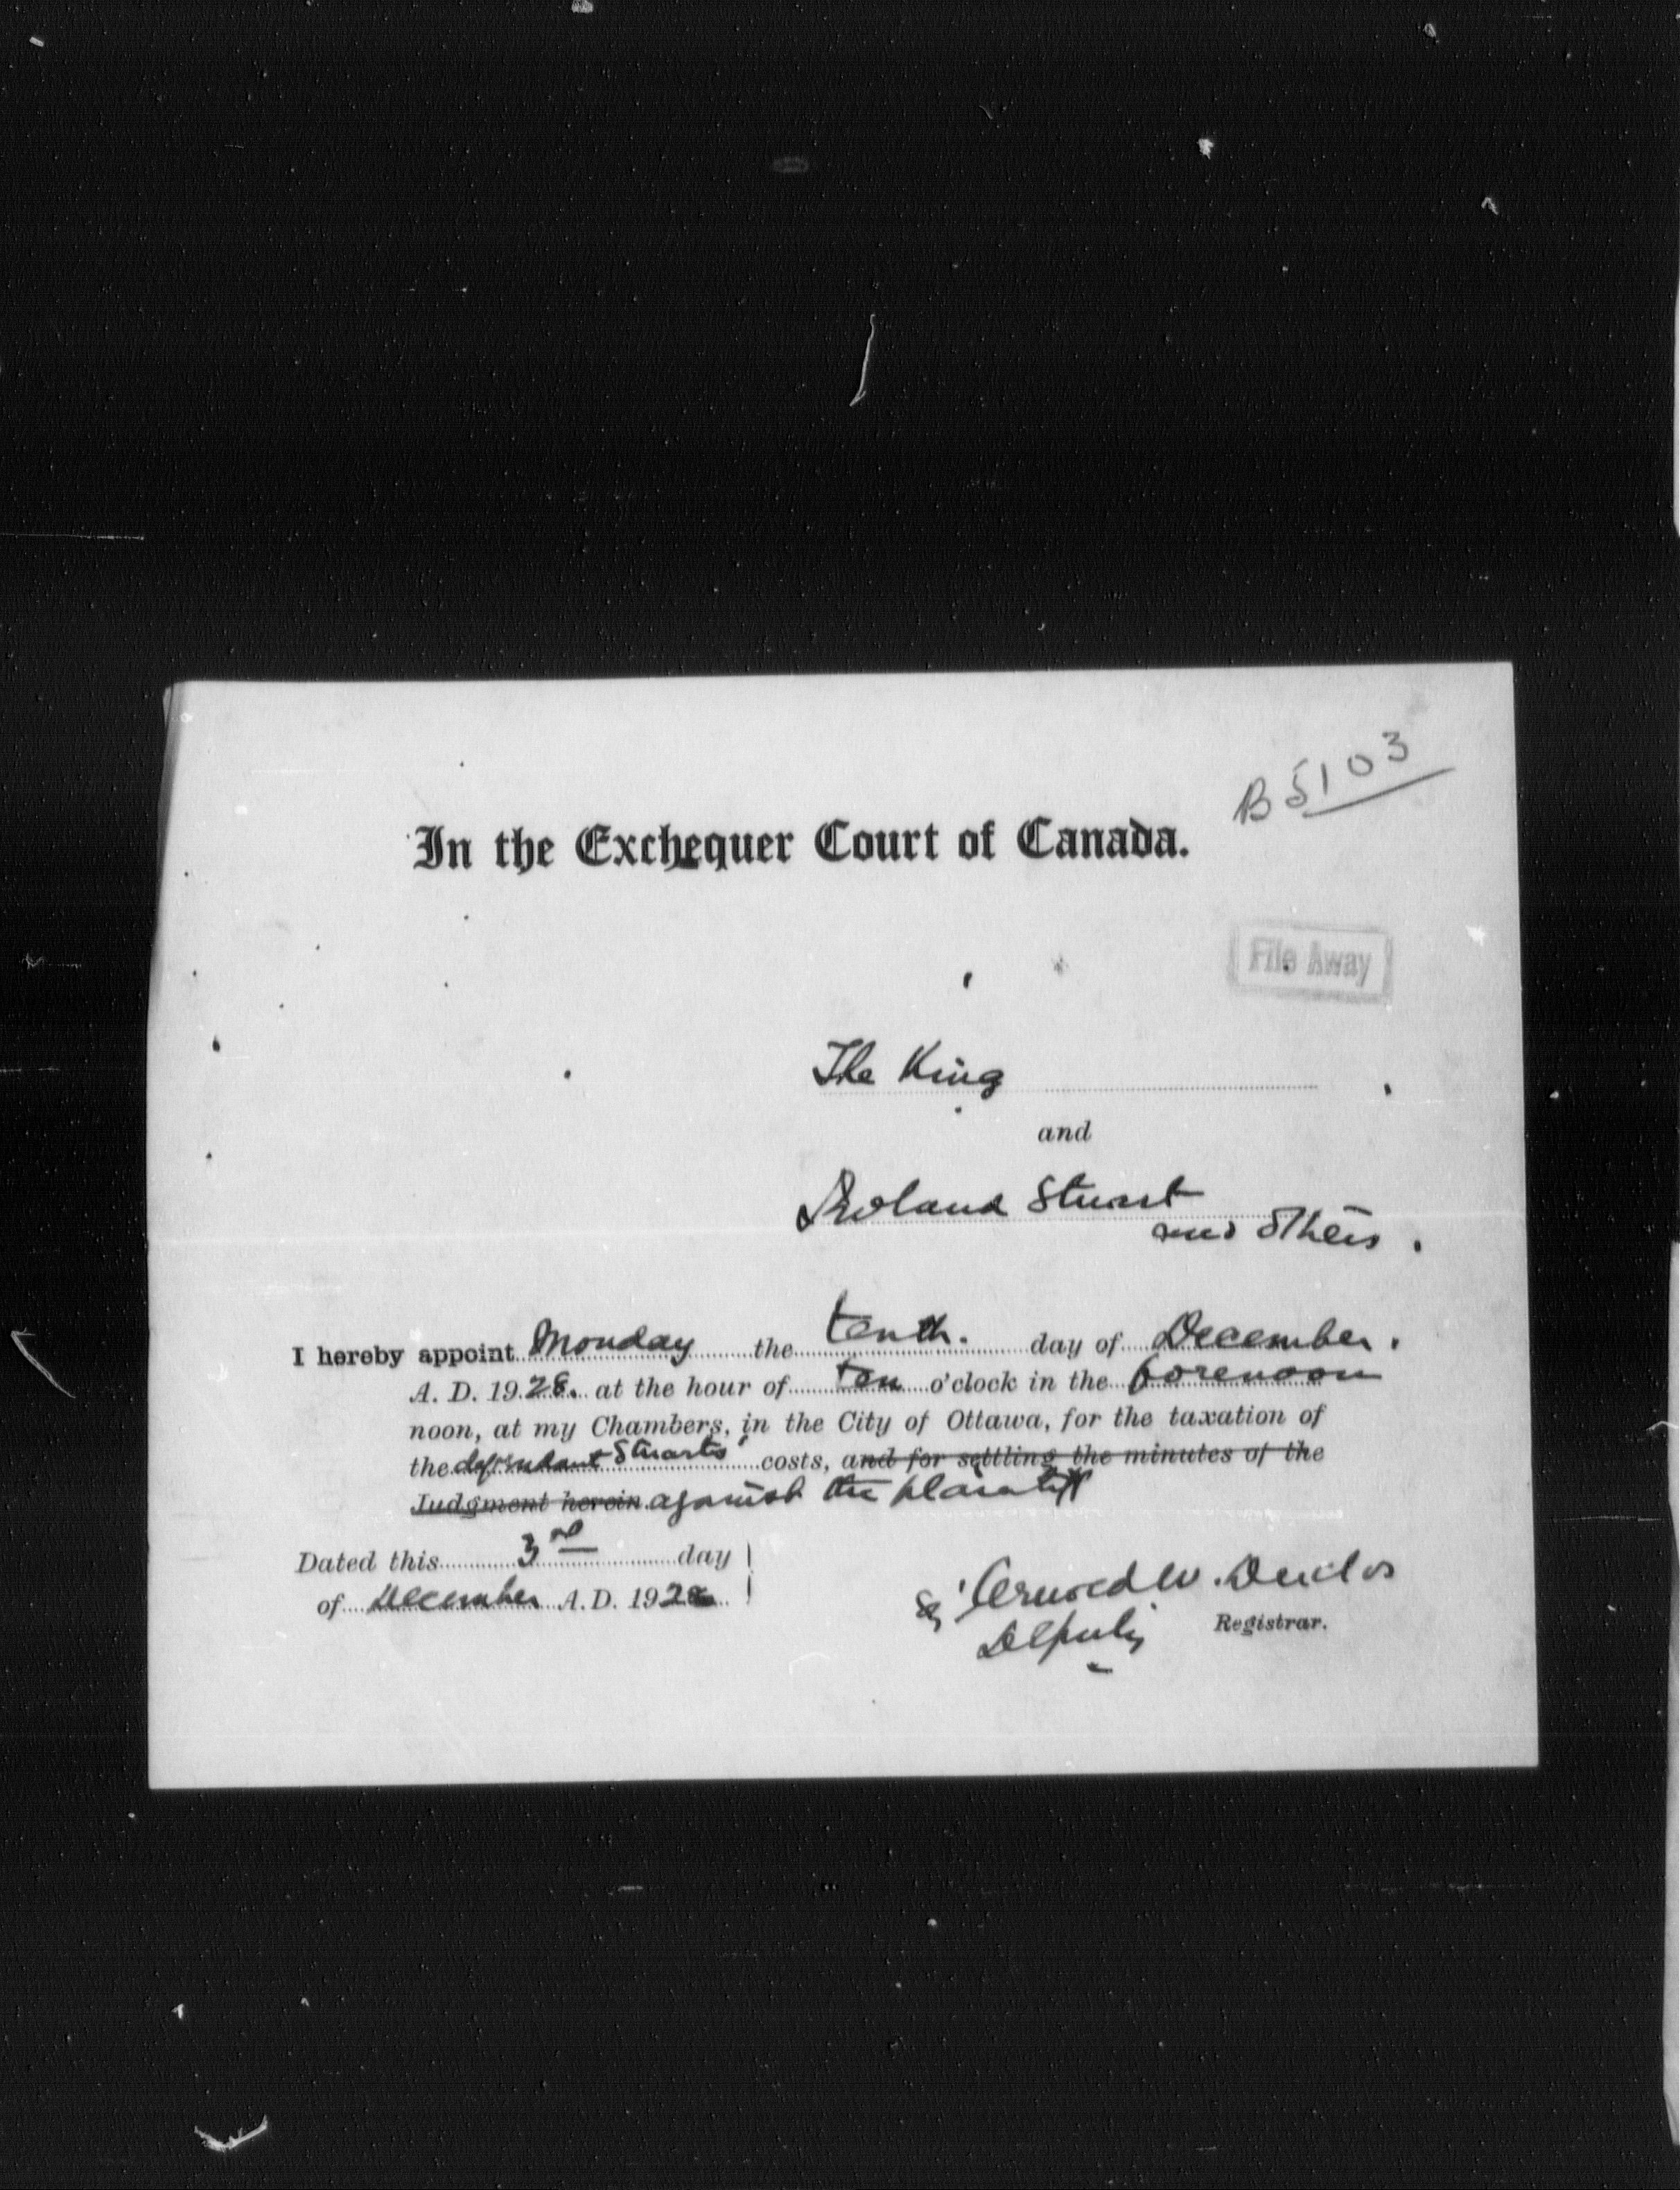 B 5103
In the Exchequer Court of Canada.
File Away
The King
and
Roland Stuart
and others.
I hereby appoint Monday the tenth. day of December.
A. D. 1928. at the hour of ten o'clock in the forenoon
noon, at my Chambers, in the City of Ottawa, for the taxation of
the defendant Stuart's costs, and for settling the minutes of the
Judgment herein against the plaintiff
Dated this 3rd day
of December A. D. 1928
W. Duclos
Deputy Registrar.